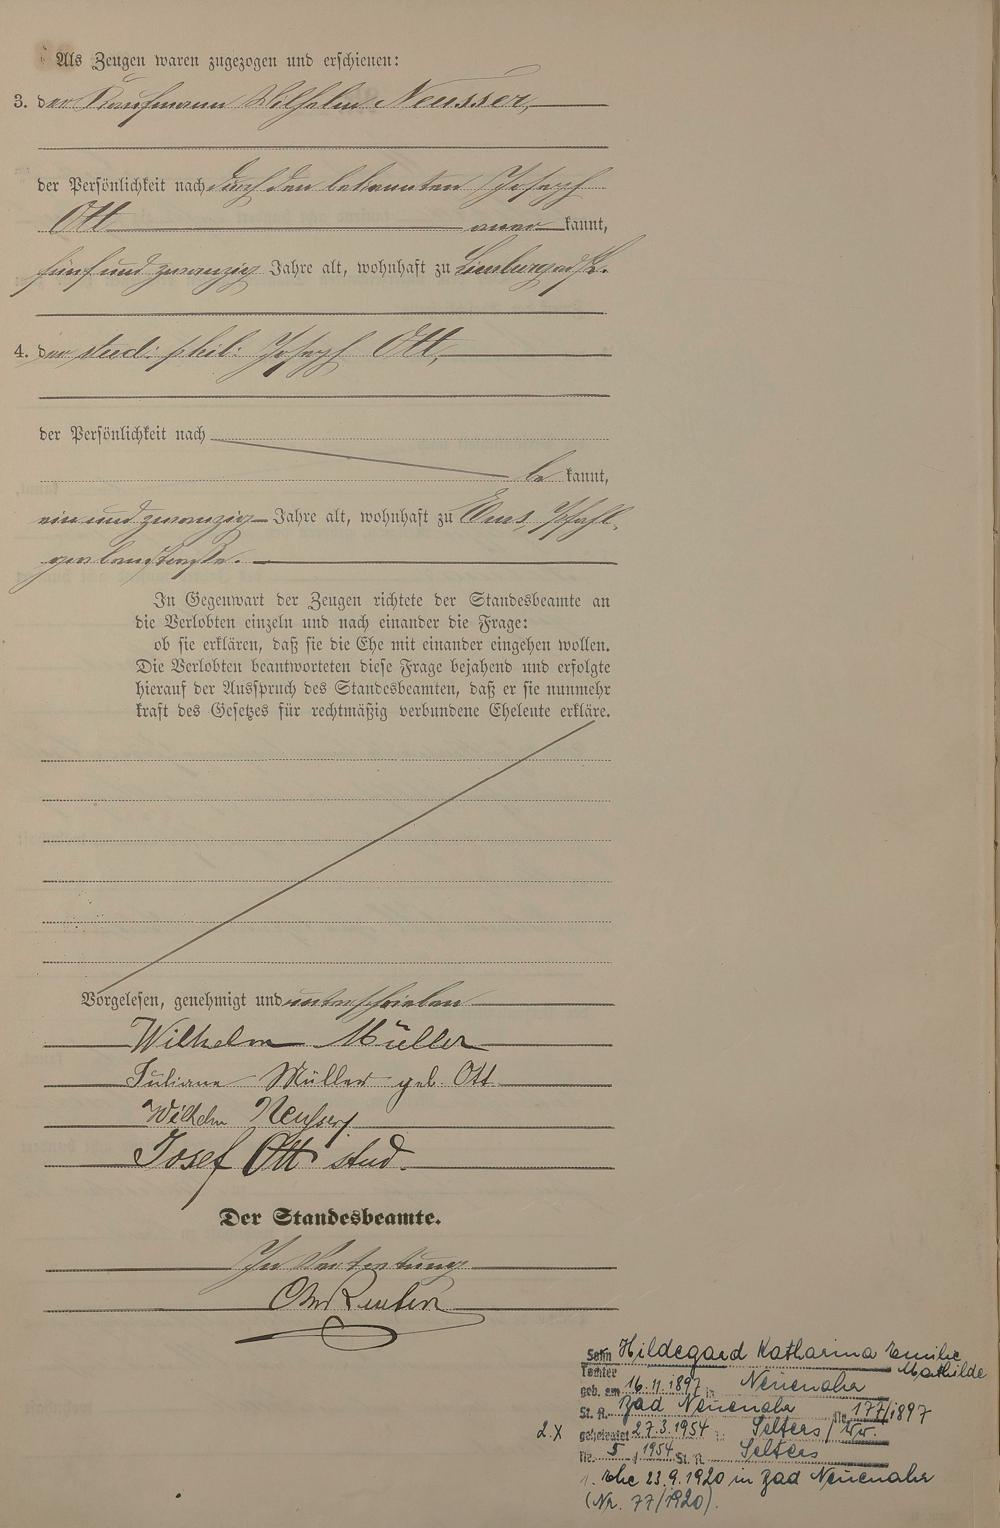 Als Zeugen waren zugezogen und erschienen:
3. der Kaufmann Wilhelm Neusser,
der Persönlichkeit nach durch den bekannten Joseph
Ott aner kannt,
fünf und zwanzig Jahre alt, wohnhaft zu Limburg
4. der stud. phil. Joseph Ott,
der Persönlichkeit nach
be kannt,
ein und zwanzig Jahre alt, wohnhaft zu Ems,
In Gegenwart der Zeugen richtete der Standesbeamte an
die Verlobten einzeln und nach einander die Frage:
ob sie erklären, daß sie die Ehe mit einander eingehen wollen.
Die Verlobten beantworteten diese Frage bejahend und erfolgte
hierauf der Ausspruch des Standesbeamten, daß er sie nunmehr
kraft des Gesetzes für rechtmäßig verbundene Eheleute erkläre.
Vorgelesen, genehmigt und unterschrieben
Wilhelm Müller
Juliane Müller geb. Ott
Wilhelm Neusser
Josef Ott stud.
Der Standesbeamte.
In Vertretung
Sohn Hildegard Katharina Emilie
Tochter Mathilde
geb. am 16.11.1897 in Neuenahr
St. A. Bad Neuenahr Nr. 177/1897
2.X geheiratet 27.3.1954 in Selters / Ww.
Nr. 5 / 1954 St. A. Selters
1. Ehe 23.9.1920 in Bad Neuenahr
(Nr. 77/1920).